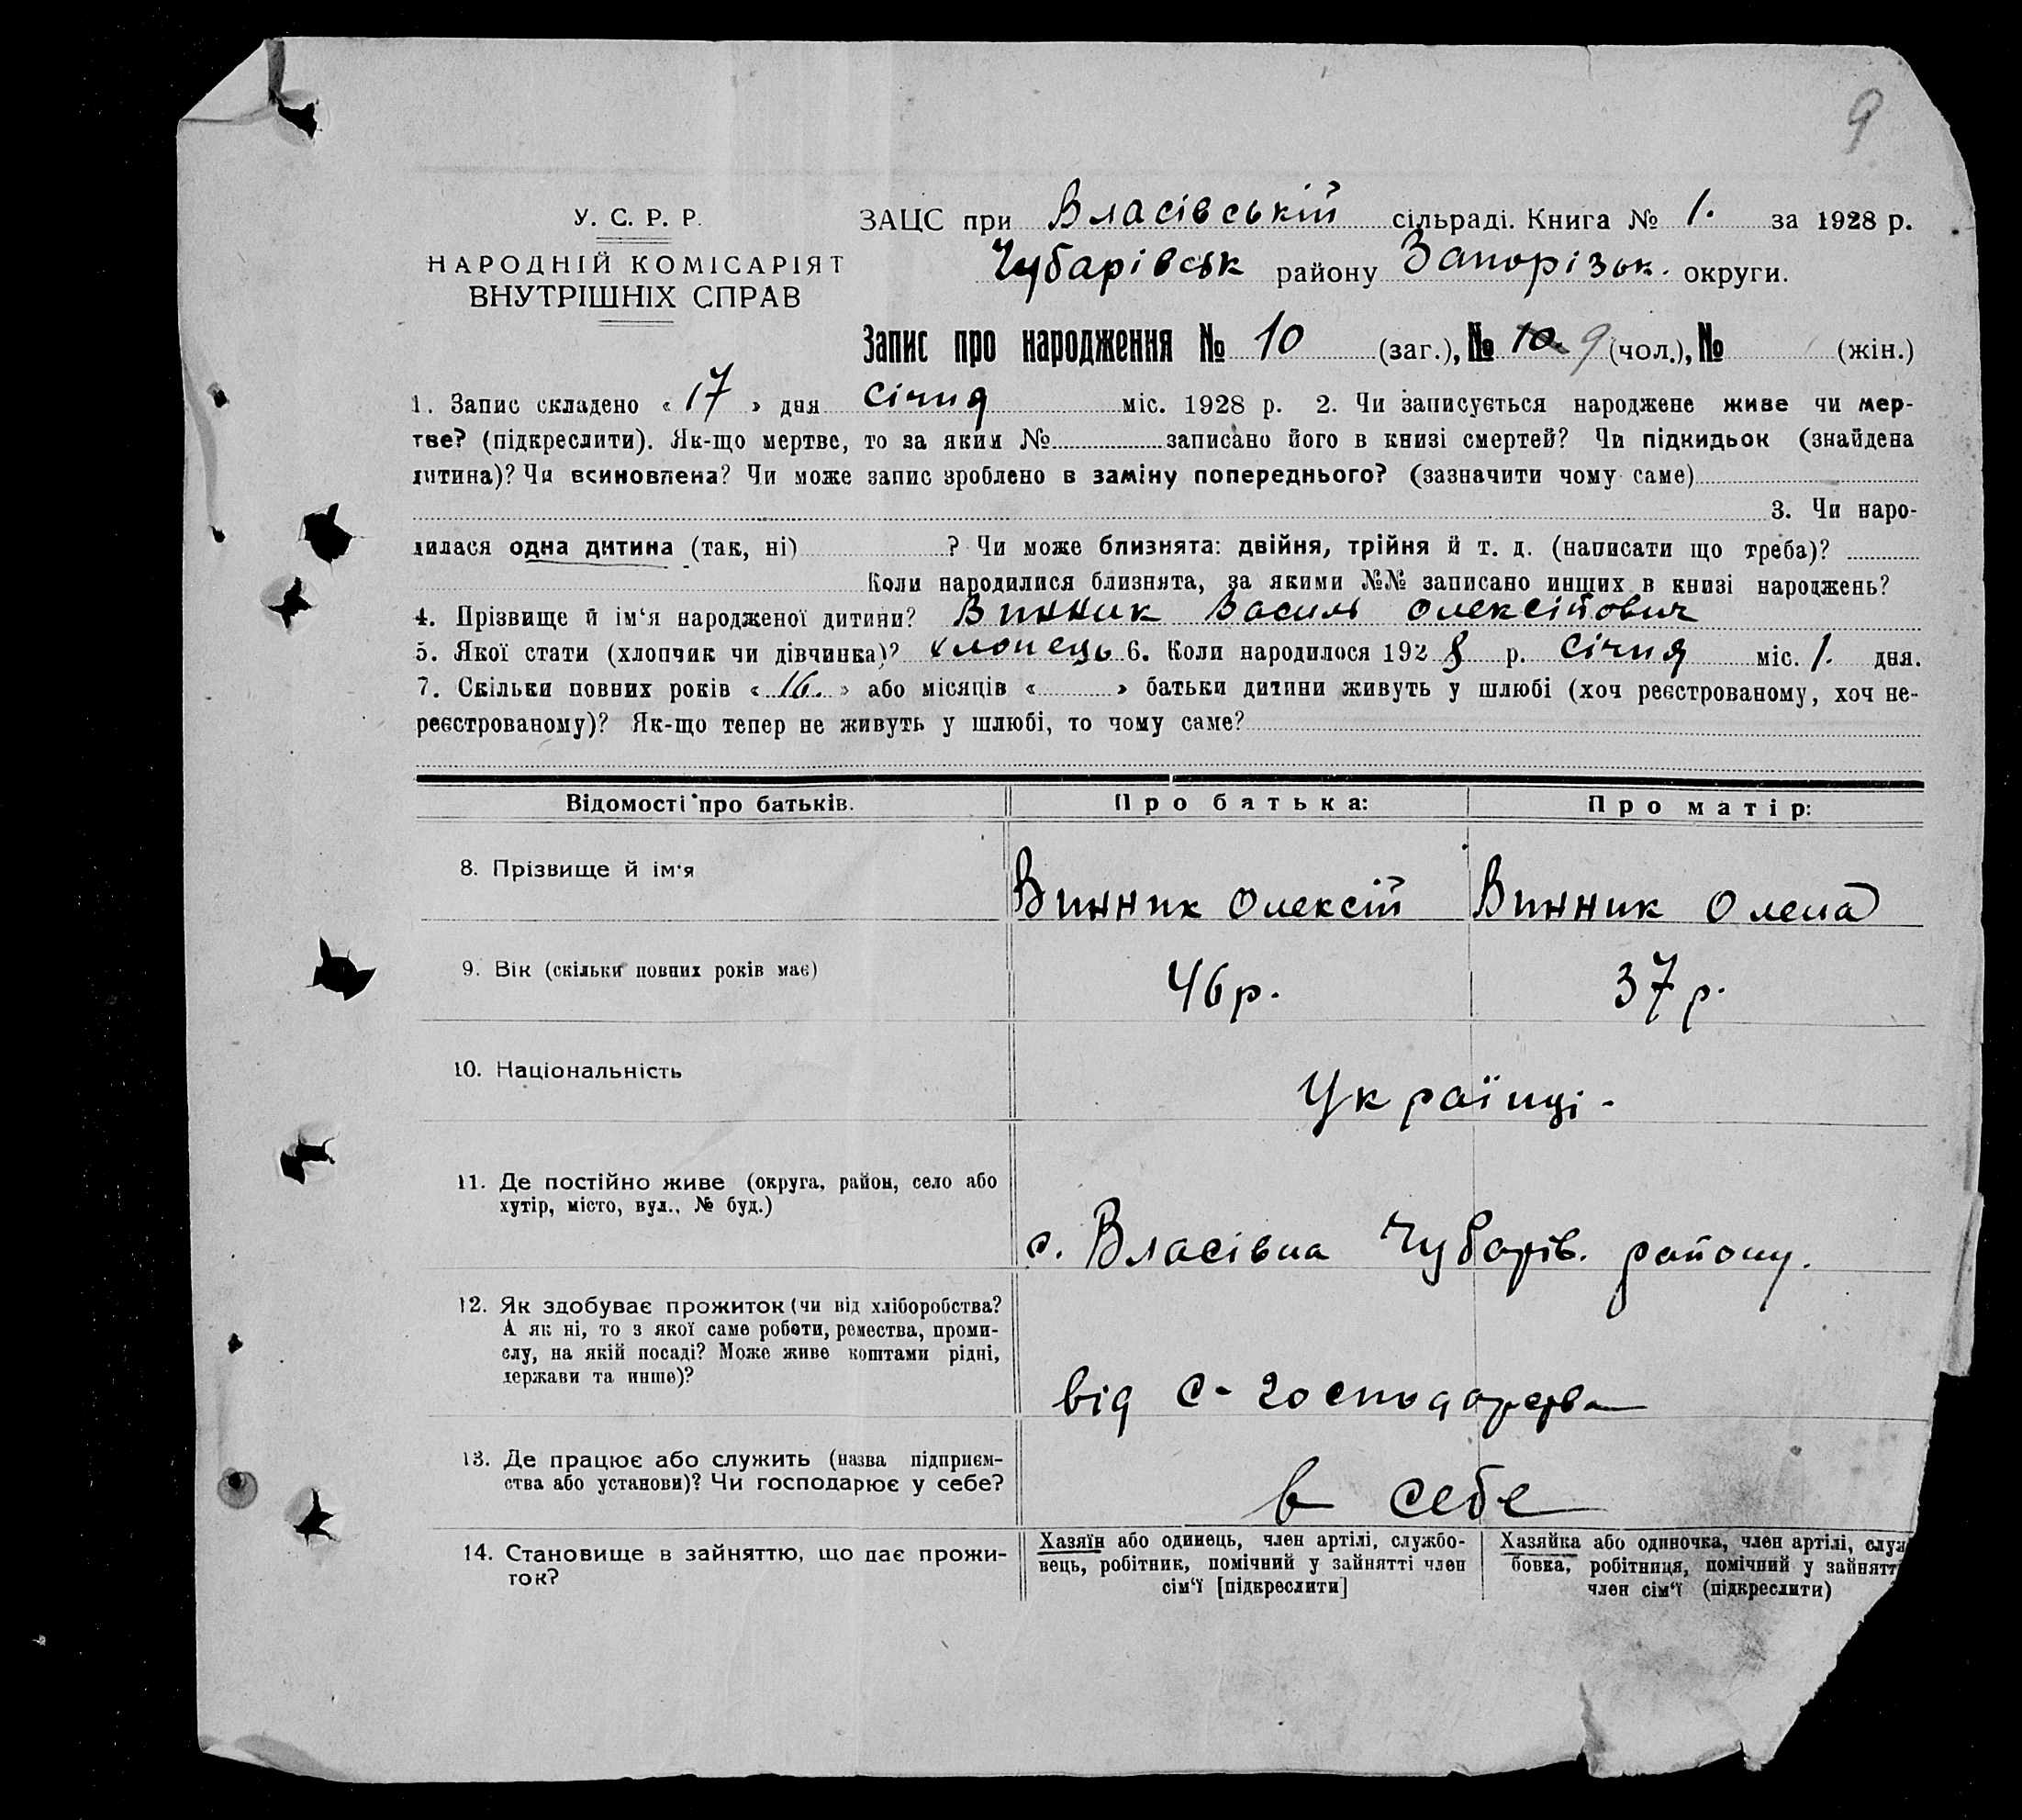 9
У. С. Р. Р.
НАРОДНІЙ КОМІСАРІЯТ
ВНУТРІШНІХ СПРАВ
ЗАЦС при Власівській сільраді. Книга № 1. за 1928 р.
Чубарівськ району Запорізьк. округи.
Запис про народження № 10 (заг.), № 10 9 (чол.), № (жін.)
1. Запис складено « 17 » дня січня міс. 1928 р. 2. Чи записується народжене живе чи мер-
тве? (підкреслити). Як-що мертве, то за яким № записано його в книзі смертей? Чи підкидьок (знайдена
дитина)? Чи всиновлена? Чи може запис зроблено в заміну попереднього? (зазначити чому саме)
3. Чи наро-
дилася одна дитина (так, ні) ? Чи може близнята: двійня, трійня й т. д. (написати що треба)?
Коли народилися близнята, за якими №№ записано инших в книзі народжень?
4. Прізвище й ім‘я народженої дитини? Винник Василь Олексійович
5. Якої стати (хлопчик чи дівчинка)? хлопець 6. Коли народилося 1928 р. січня міс. 1. дня.
7. Скільки повних років « 16. » або місяців « » батьки дитини живуть у шлюбі (хоч реєстрованому, хоч не-
реєстрованому)? Як-що тепер не живуть у шлюбі, то чому саме?
Відомості про батьків. Про батька: Про матір:
8. Прізвище й ім‘я Винник Олексій Винник Олена
9. Вік (скільки повних років має) 46 р. 37 р.
10. Національність Українці.
11. Де постійно живе (округа, район, село або
хутір, місто, вул., № буд.)
с. Власівка Чубарів. району.
12. Як здобуває прожиток (чи від хліборобства?
А як ні, то з якої саме роботи, ремества, проми-
слу, на якій посаді? Може живе коштами рідні,
держави та инше)?
від с-господарства
13. Де працює або служить (назва підприєм-
ства або установи)? Чи господарює у себе?
в себе
14. Становище в зайняттю, що дає прожи-
ток?
Хазяїн або одинець, член артілі, службо-
вець, робітник, помічний у зайнятті член
сім‘ї [підкреслити]
Хазяйка або одиночка, член артілі, служ
бовка, робітниця, помічний у зайнятт
член сім‘ї (підкреслити)